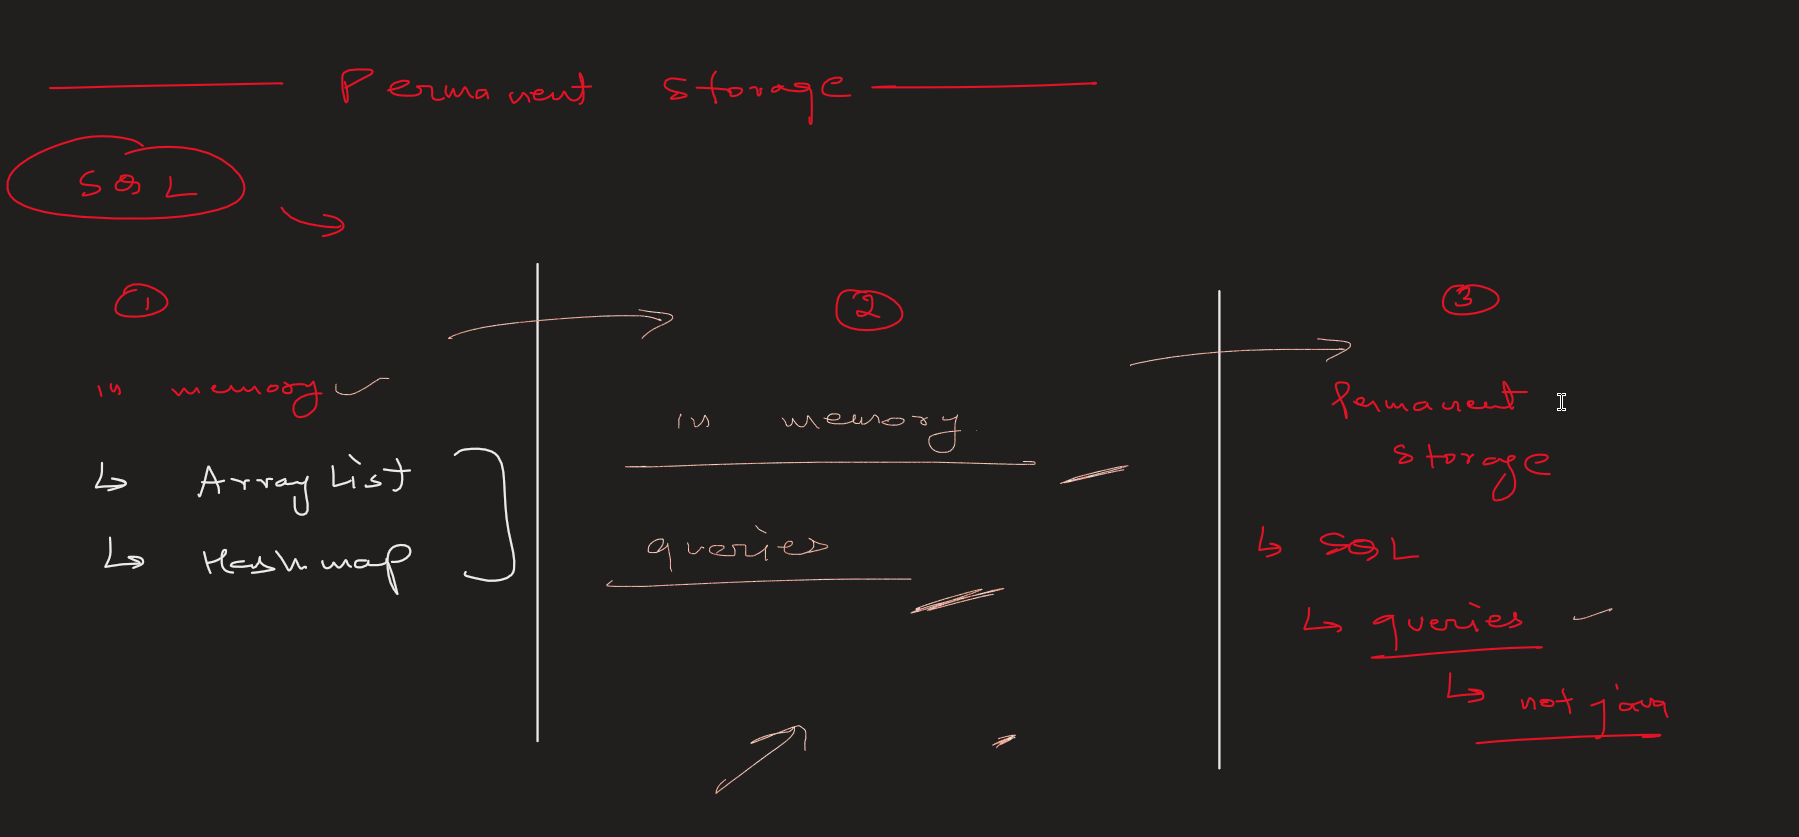 Permanent Storage
SQL
1
in memory
ArrayList
Hashmap
2
in memory
queries
3
Permanent
Storage
SQL
queries
not java